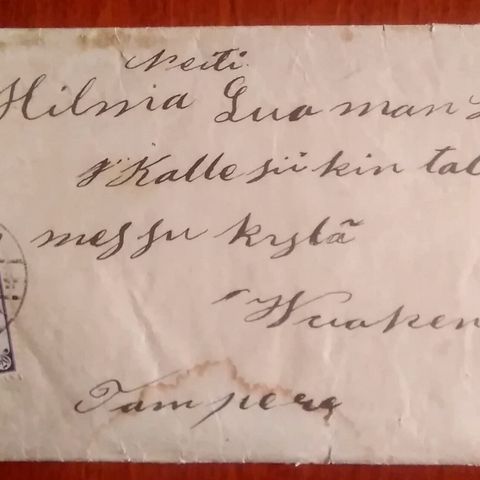 Neiti
Hilma Luoman
Kallesiikin tal
messu kylä
Wuoken
Tampere